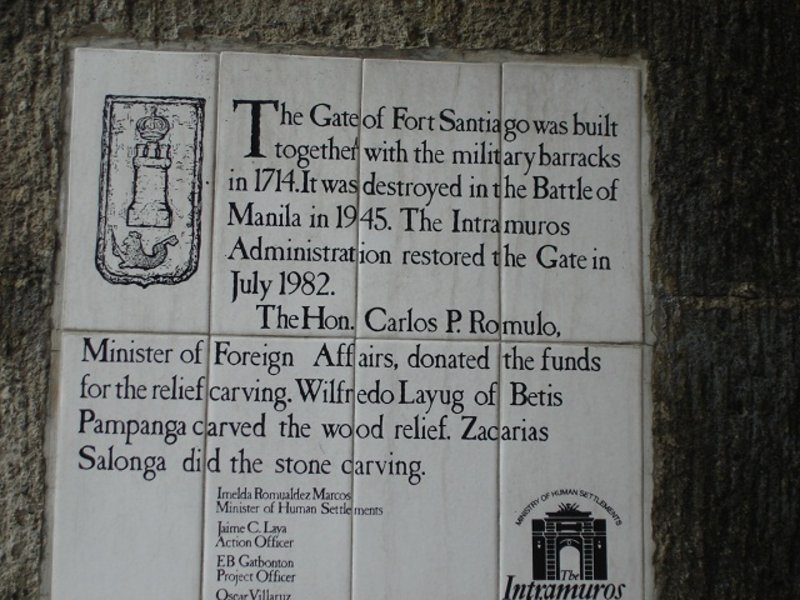 The Gate of Fort Santiago was built
together with the military barracks
in 1714. It was destroyed in the Battle of
Manila in 1945. The Intramuros
Administration restored the Gate in
July 1982.
The Hon. Carlos P. Romulo,
Minister of Foreign Affairs, donated the funds
for the relief carving. Wilfredo Layug of Betis
Pampanga carved the wood relief. Zacarias
Salonga did the stone carving.
Imelda Romualdez Marcos
Minister of Human Settlements
Jaime C. Lava
Action Officer
EB Gatbonton
Project Officer
Oscar Villaruz
MINISTRY OF HUMAN SETTLEMENTS
The
Intramuros